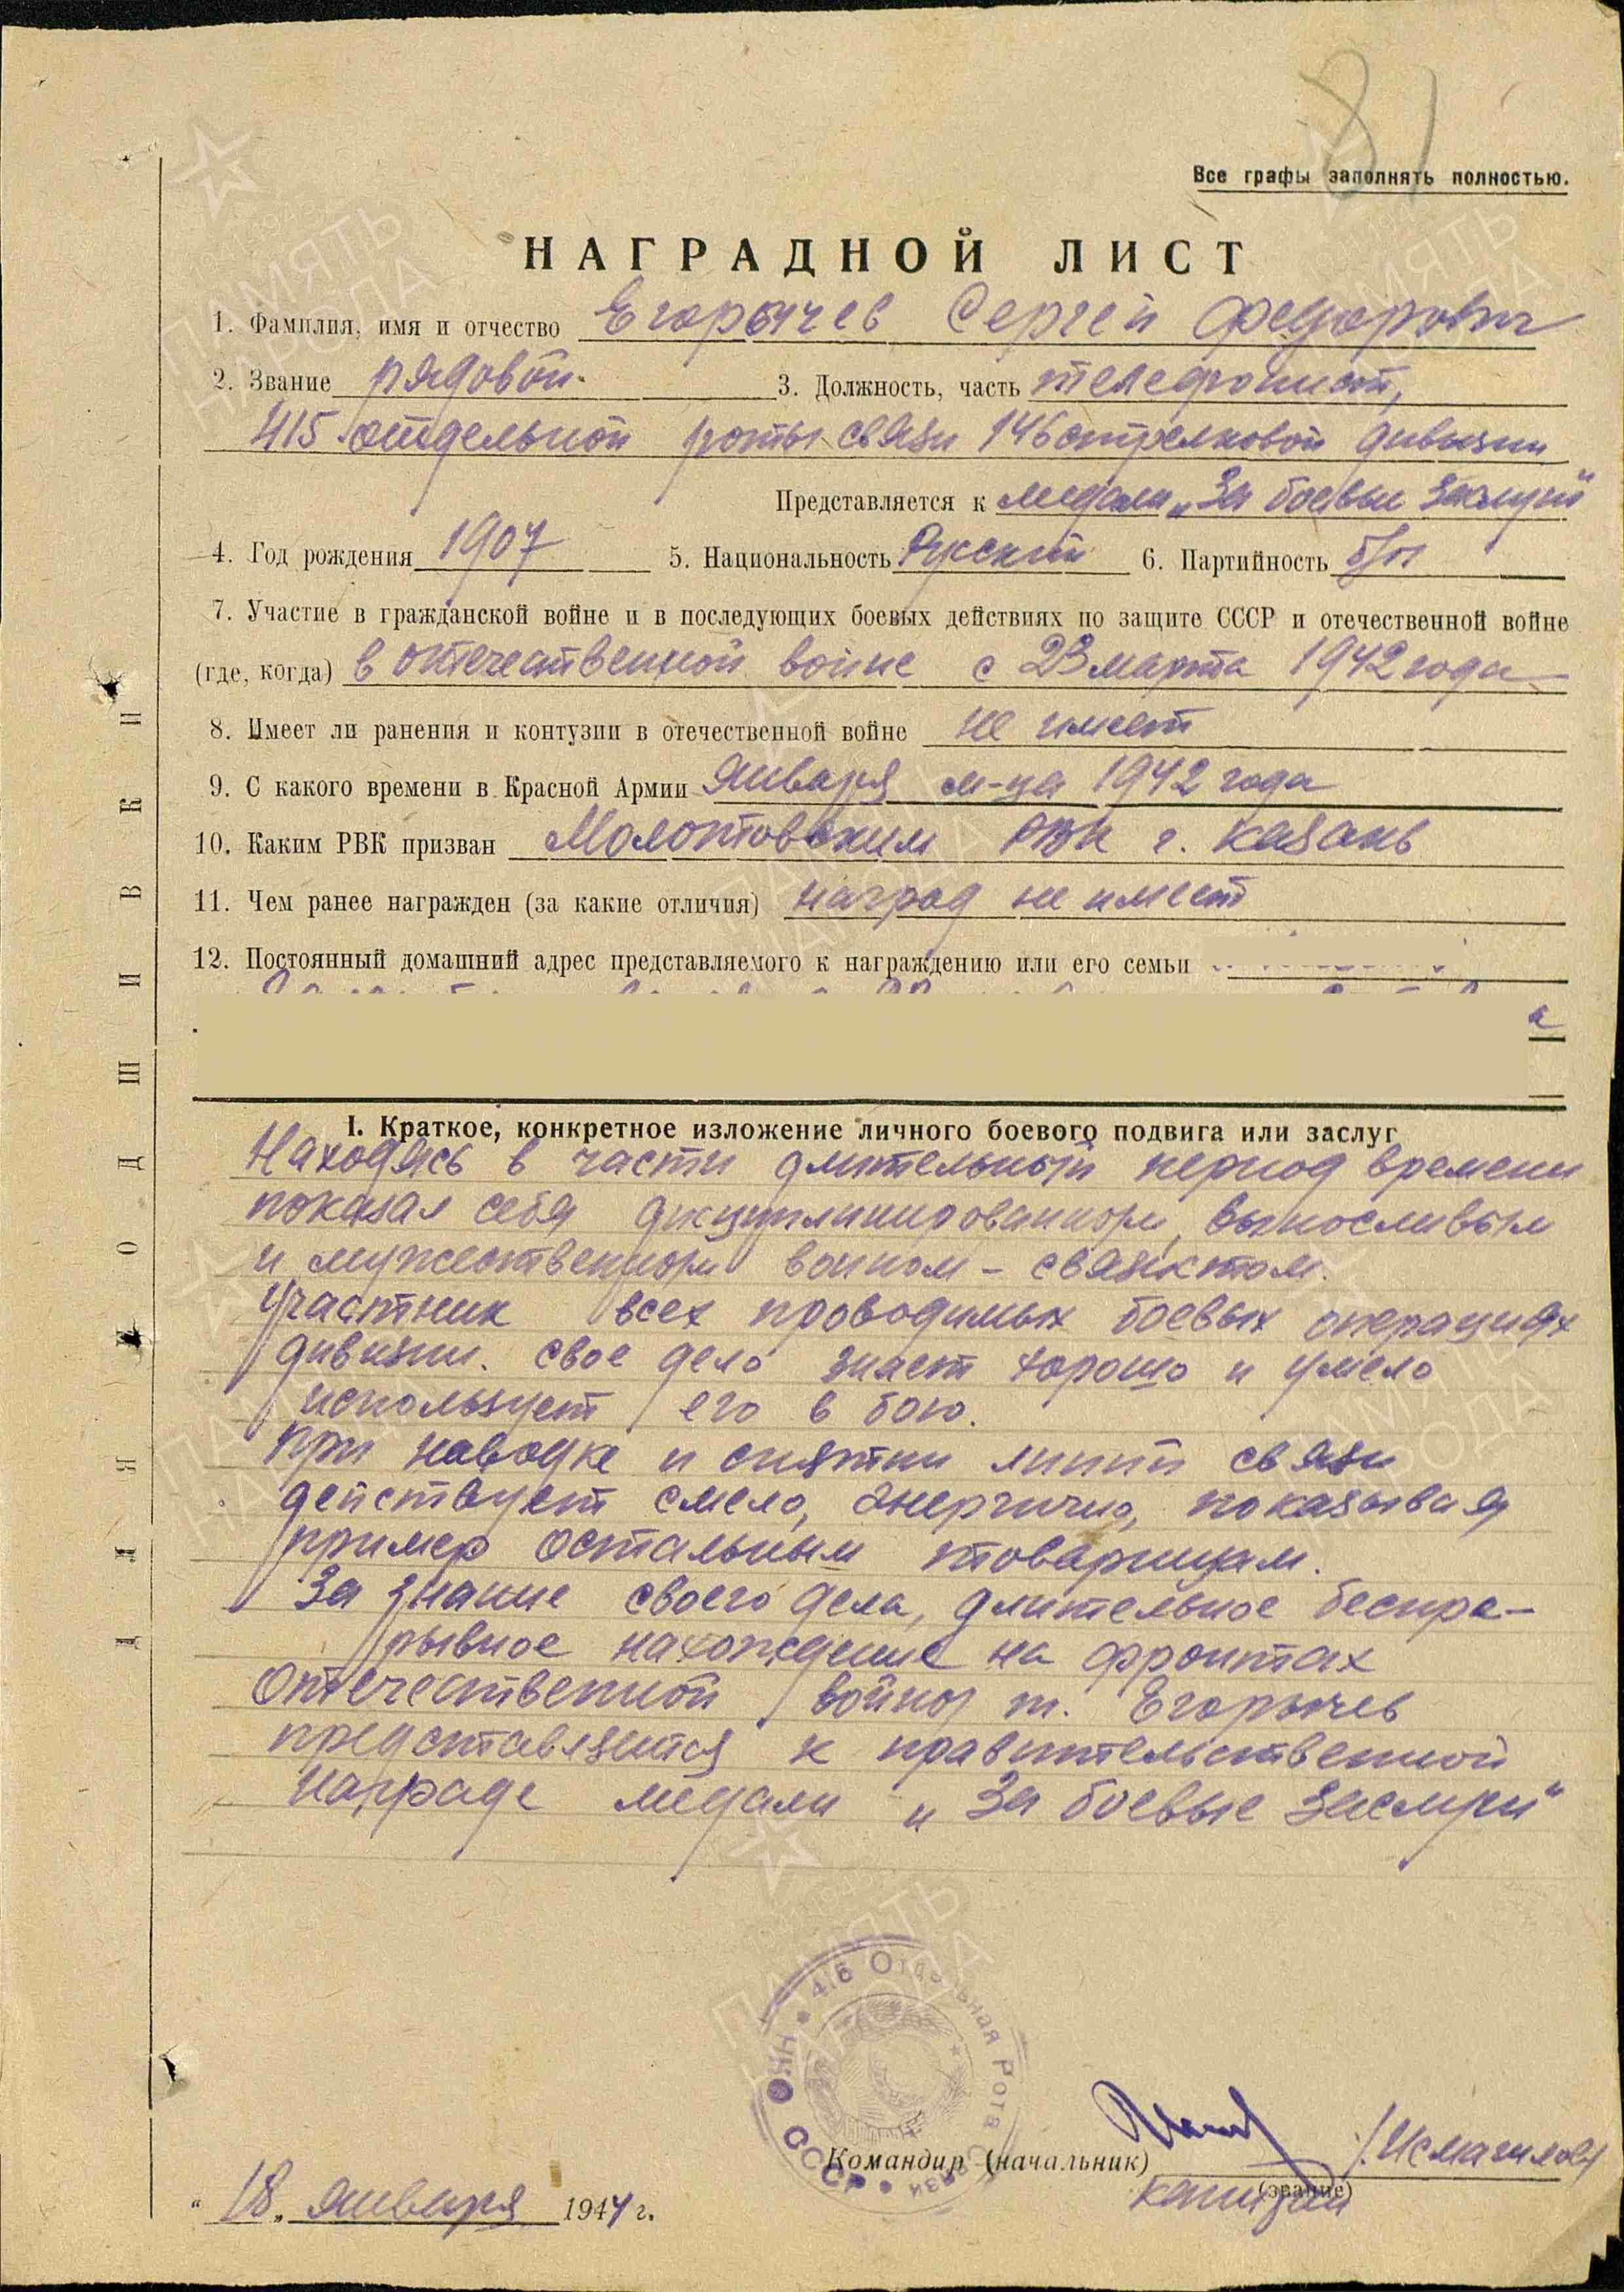 81
Все графы заполнять полностью.
НАГРАДНОЙ ЛИСТ
1. Фамилия, имя и отчество Егорычев Сергей Федорович
2. Звание рядовой. 3. Должность, часть телефонист,
415 отдельной роты связи 146 стрелковой дивизии
Представляется к медали „За боевые заслуги"
4. Год рождения 1907 5. Национальность Русский 6. Партийность б/п
7. Участие в гражданской войне и в последующих боевых действиях по защите СССР и отечественной войне
(где, когда) в отечественной войне с 23 марта 1942 года
8. Имеет ли ранения и контузии в отечественной войне не имеет
9. С какого времени в Красной Армии Января м-ца 1942 года
10. Каким РВК призван Молотовским РВК г. Казань
11. Чем ранее награжден (за какие отличия) наград не имеет
12. Постоянный домашний адрес представляемого к награждению или его семьи
I. Краткое, конкретное изложение личного боевого подвига или заслуг
Находясь в части длительный период времени
показал себя дисциплинированном, выносливым
и мужественном воином - связистом.
Участник всех проводимых боевых операциях
дивизии. свое дело знает хорошо и умело
использует его в бою.
При наводке и снятии линий связи
действует смело, энергично, показывая
пример остальным товарищам.
За знание своего дела, длительное беспре-
рывное нахождение на фронтах
Отечественной войны т. Егорычев
представляется к правительственной
награде медали „За боевые заслуги"
415 Отдельная Рота Связи • СССР • НКО
Командир (начальник) /Исмагилов/
(звание)
капитан
„18„ января 1944 г.
ДЛЯ ПОДШИВКИ
ПАМЯТЬ
НАРОДА